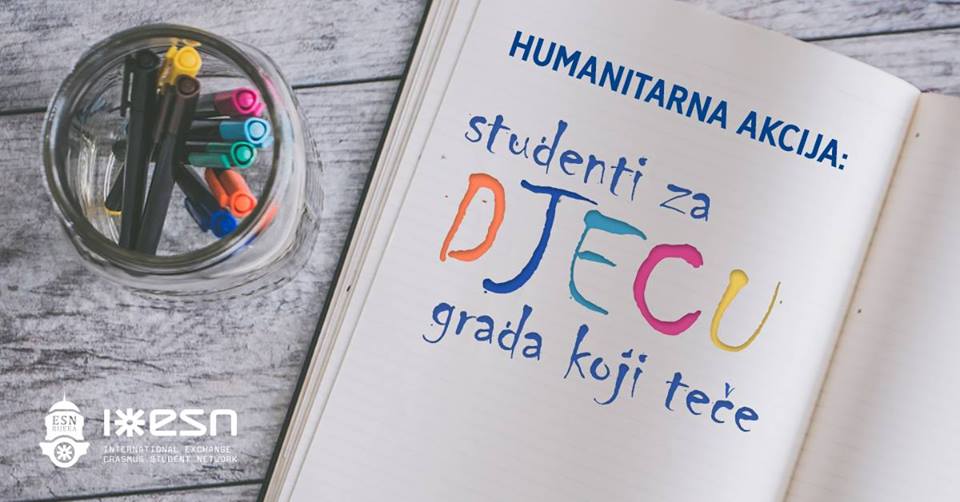 HUMANITARNA AKCIJA:
studenti za
DJECU
grada koji teče
ESN
RIJEKA
ixesn
INTERNATIONAL EXCHANGE
ERASMUS STUDENT NETWORK